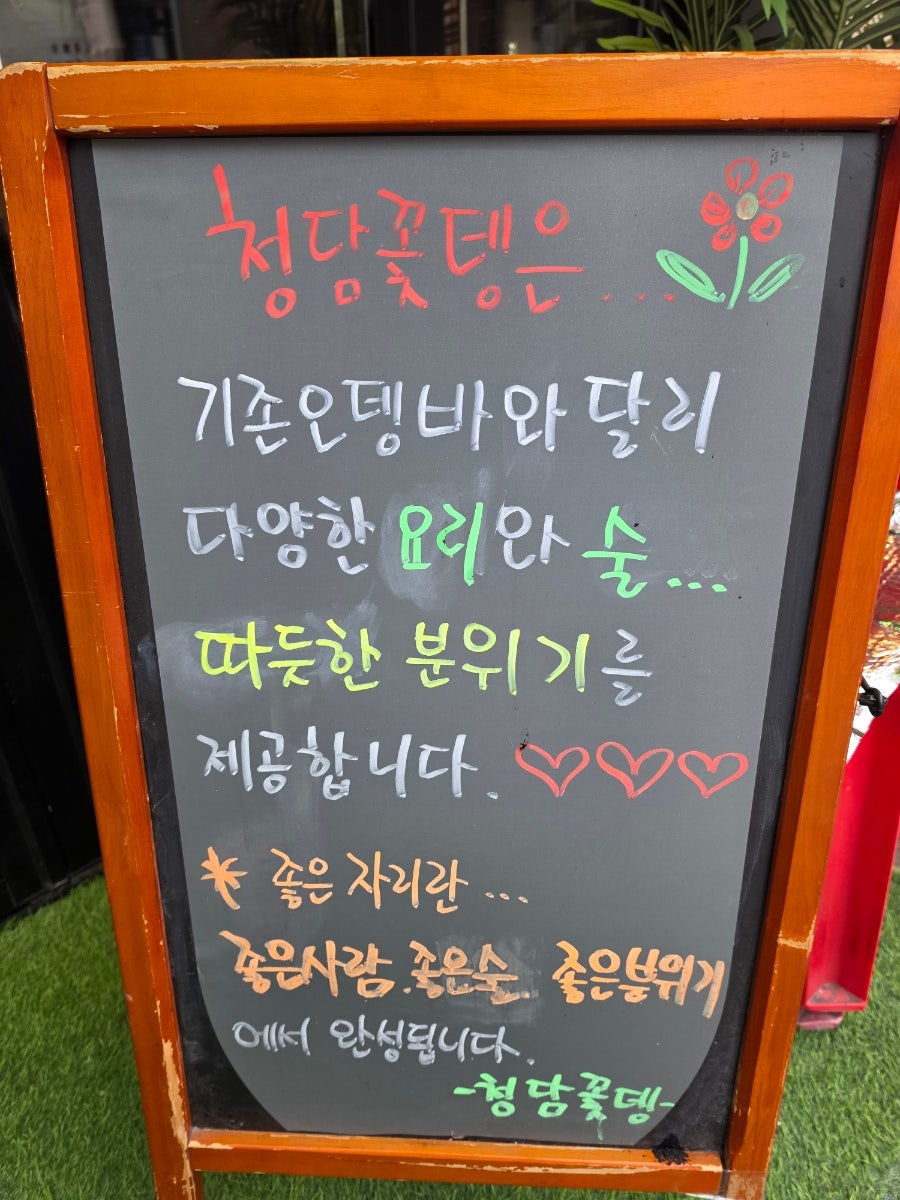 청담꽃뎅은 ....
기존오뎅바와달리
다양한 요리와 술...
따듯한 분위기를
제공합니다. ♡♡♡
* 좋은 자리란 ...
좋은사람.좋은술. 좋은분위기
에서 완성됩니다.
-청담꽃뎅-